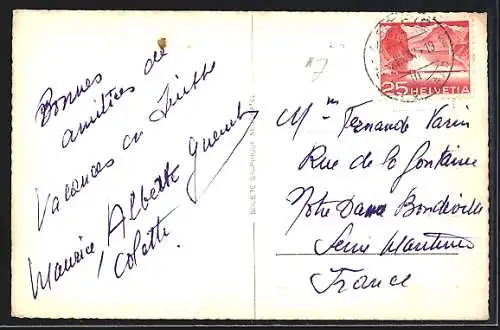 Bonnes
amitiés de
Vacances en Suisse
Maurice Alberte
Colette.
25 HELVETIA
Mme Fernande Varin
Rue de la fontaine
Notre Dame Bondeville
Seine Maritime
France